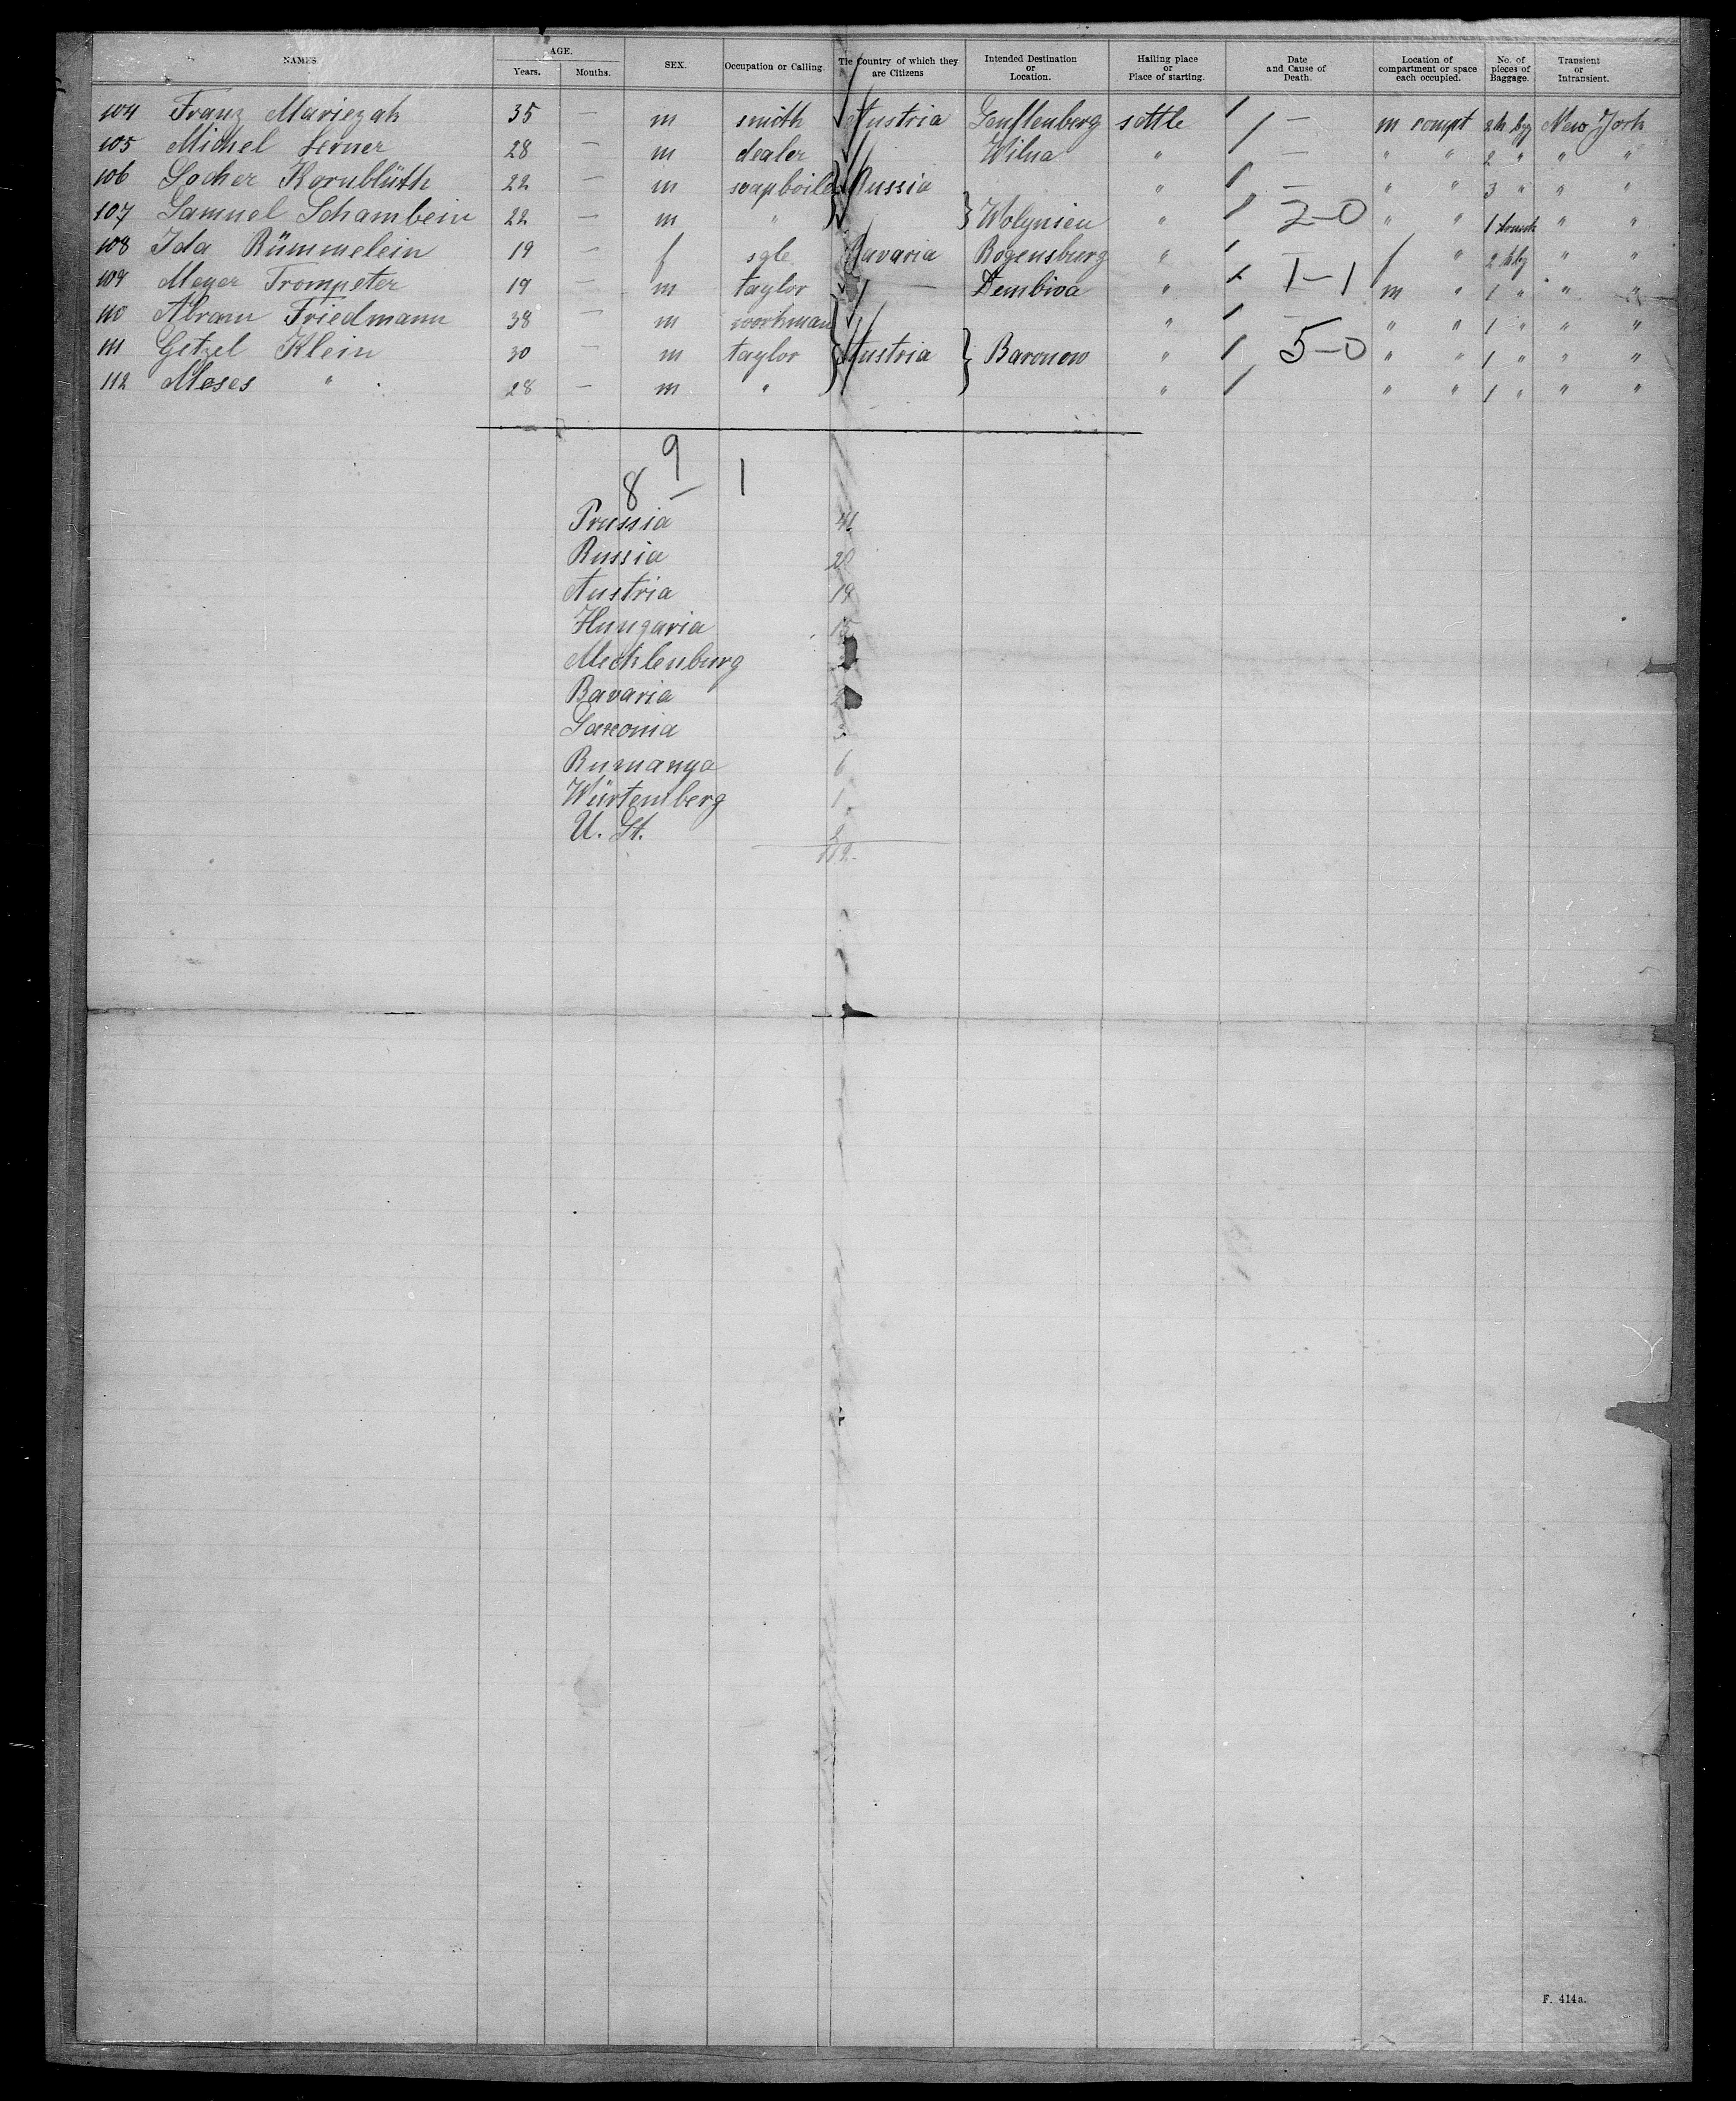 NAMES. AGE. Years. Months. SEX. Occupation or Calling. The Country of which they are Citizens Intended Destination or Location. Hailing place or Place of starting. Date and Cause of Death. Location of compartment or space each occupied. No. of pieces of Baggage. Transient or Intransient.
104 Franz Mariezak 35 — m smith Austria settle / — m compt 2 New York
105 Michel Lerner 28 — m dealer Wilna " / — " " 2 " " "
106 Socher Kornblüth 22 — m soapboiler Russia " / — " " 3 " " "
107 Samuel Schambein 22 — m " } } Wolynien " / 2–0 " " 1 trunk " "
108 Ida Rümmelein 19 — f sgle Bavaria Regensburg " / — f " 2 " "
109 Meyer Trompeter 19 — m taylor — Dembiva " / 1–1 m " 1 " " "
110 Abram Friedmann 38 — m workman " / — " " 1 " " "
111 Getzel Klein 30 — m taylor } Austria } Baronow " / 5–0 " " 1 " " "
112 Moses " 28 — m " " / " " 1 " " "
9
8 – 1
Prussia 41
Russia 20
Austria 19
Hungaria 15
Mecklenburg
Bavaria
Saxonia 3
Rumanya 6
Würtemberg 1
U. St. 2
112.
F. 414a.